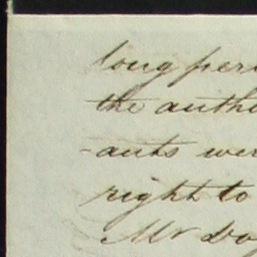 long peri
the autho
-ants wer
right to
Mr Do